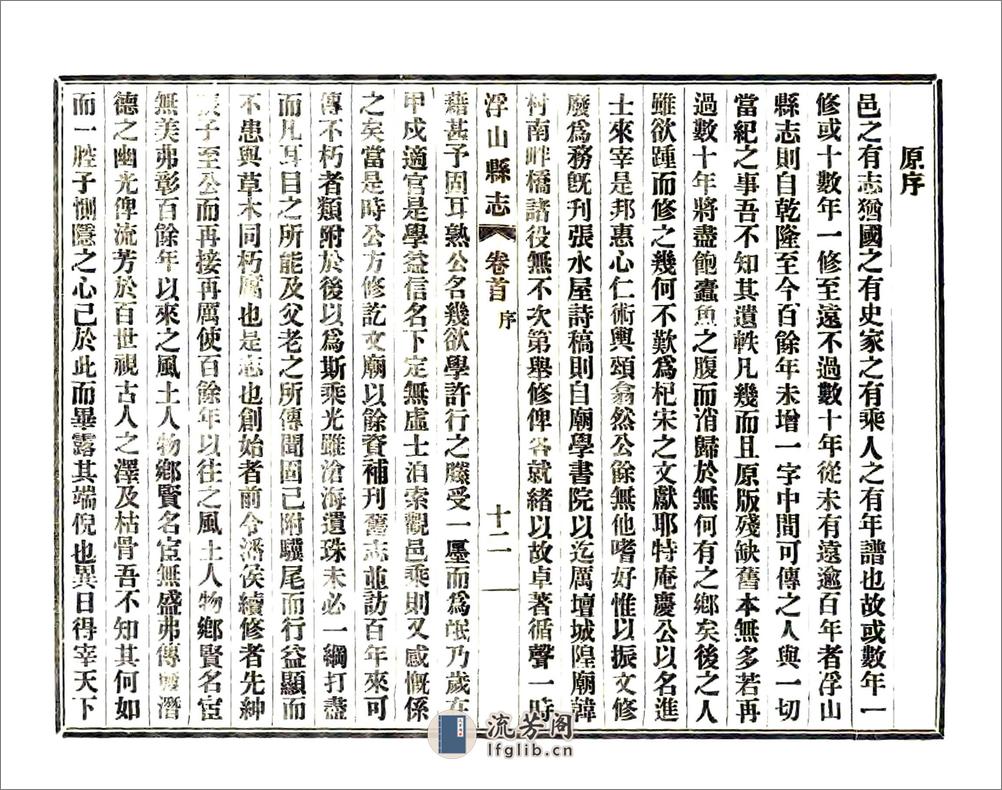 原序
邑之有志猶國之有史家之有乘人之有年譜也故或數年一
修或十數年一修至遠不過數十年從未有遠逾百年者浮山
縣志則自乾隆至今百餘年未增一字中間可傳之人與一切
當紀之事吾不知其遺軼凡幾而且原版殘缺舊本無多若再
過數十年將盡飽蠹魚之腹而消歸於無何有之鄉矣後之人
雖欲踵而修之幾何不歎為杞宋之文獻耶特庵慶公以名進
士來宰是邦惠心仁術輿頌翕然公餘無他嗜好惟以振文修
廢為務旣刊張水屋詩稿則自廟學書院以迄厲壇城隍廟韓
村南畔橋諸役無不次第舉修俾各就緒以故卓著循聲一時
浮山縣志 卷首 序 十二
藉甚予固耳熟公名幾欲學許行之滕受一廛而為氓乃歲在
甲戍適官是學益信名下定無虛士洎索觀邑乘則又感慨係
之矣當是時公方修訖文廟以餘資補刊舊志並訪百年來可
傳不朽者類附於後以為斯乘光雖滄海遺珠未必一綱打盡
而凡耳目之所能及父老之所傳聞固已附驥尾而行益顯而
不患與草木同朽腐也是志也創始者前令潘侯續修者先紳
張子至公而再接再厲使百餘年以往之風土人物鄉賢名宦
無美弗彰百餘年以來之風土人物鄉賢名宦無盛弗傳 潛
德之幽光俾流芳於百世視古人之澤及枯骨吾不知其何如
而一腔子惻隱之心已於此而畢露其端倪也異日得宰天下
流芳阁
lfglib.cn